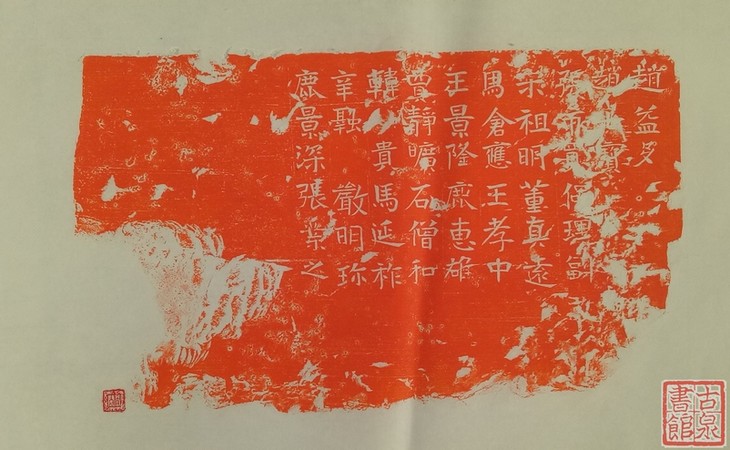 趙益歩
趙
張 保理嗣
宋祖明 董真遠
馬倉應 王孝中
王景隆 鹿惠雄
賈靜曠 石僧和
轉 貴 馬延祚
辛 嚴明珎
鹿景深 張 之
古泉書館